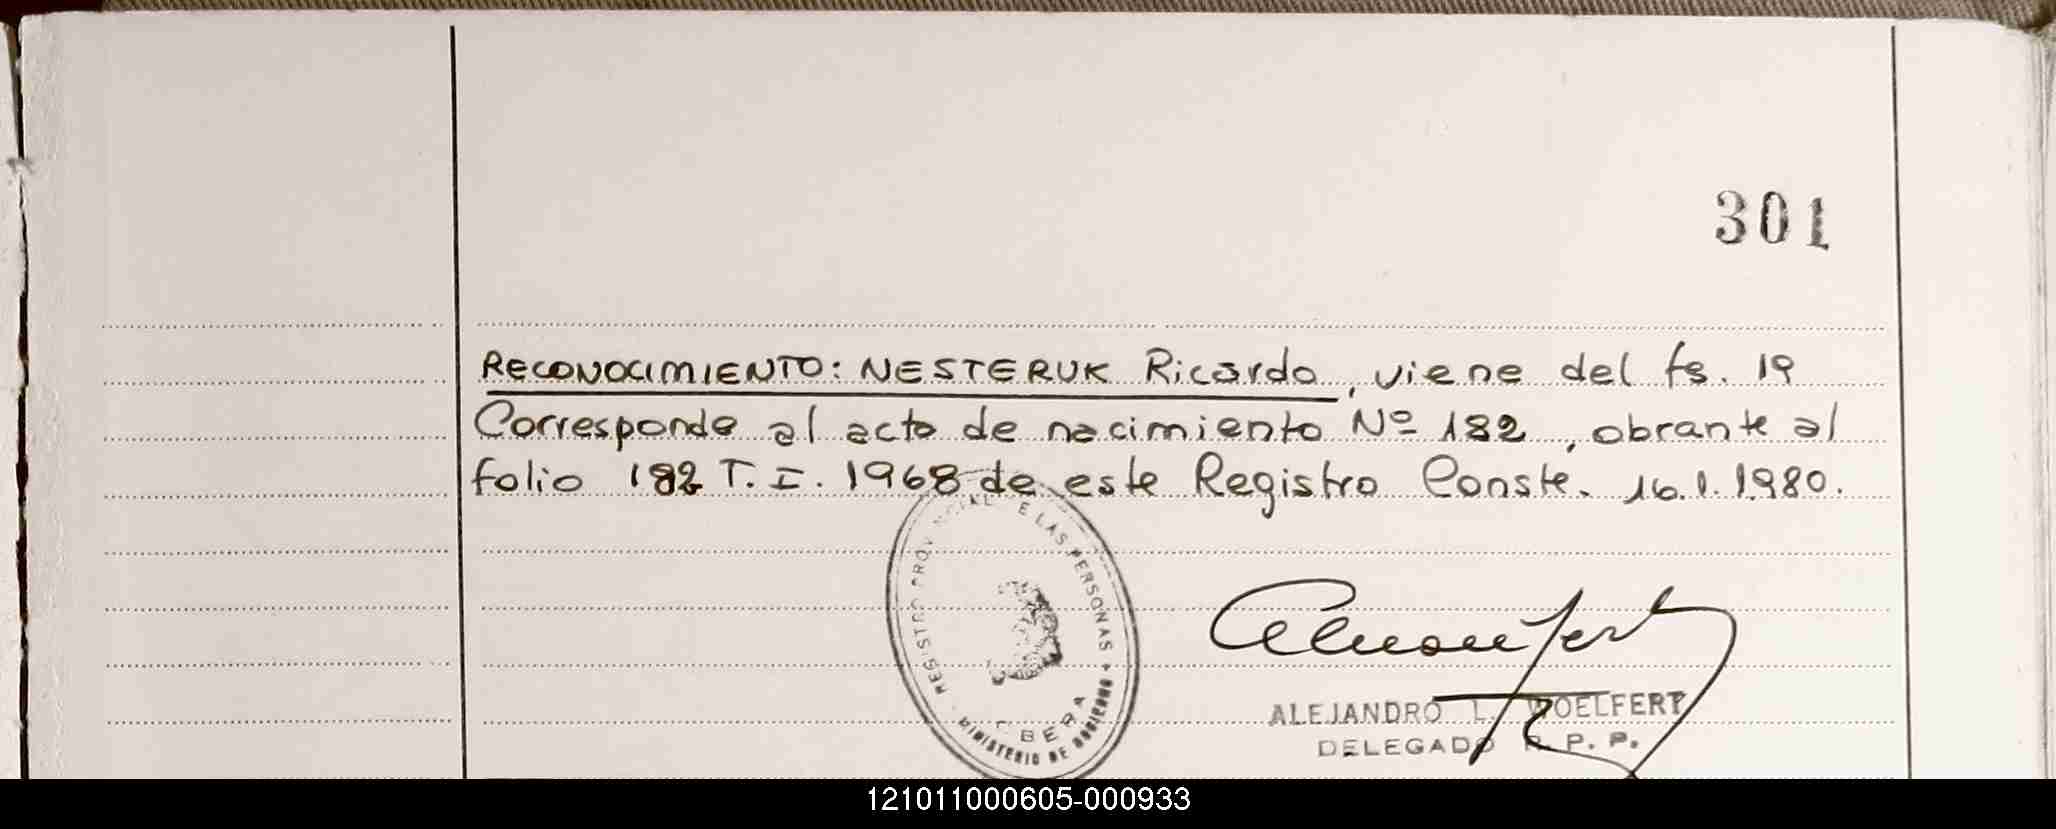 301
RECONOCIMIENTO: NESTERUK Ricardo, viene del fs. 19
Corresponde al acto de nacimiento Nº 182, obrante al
folio 182 T. I. 1968 de este Registro Conste. 16.1.1980.
REGISTRO PROVINCIAL DE LAS PERSONAS
MINISTERIO DE GOBIERNO
C. BERA
ALEJANDRO L. WOELFERT
DELEGADO R. P. P.
121011000605-000933